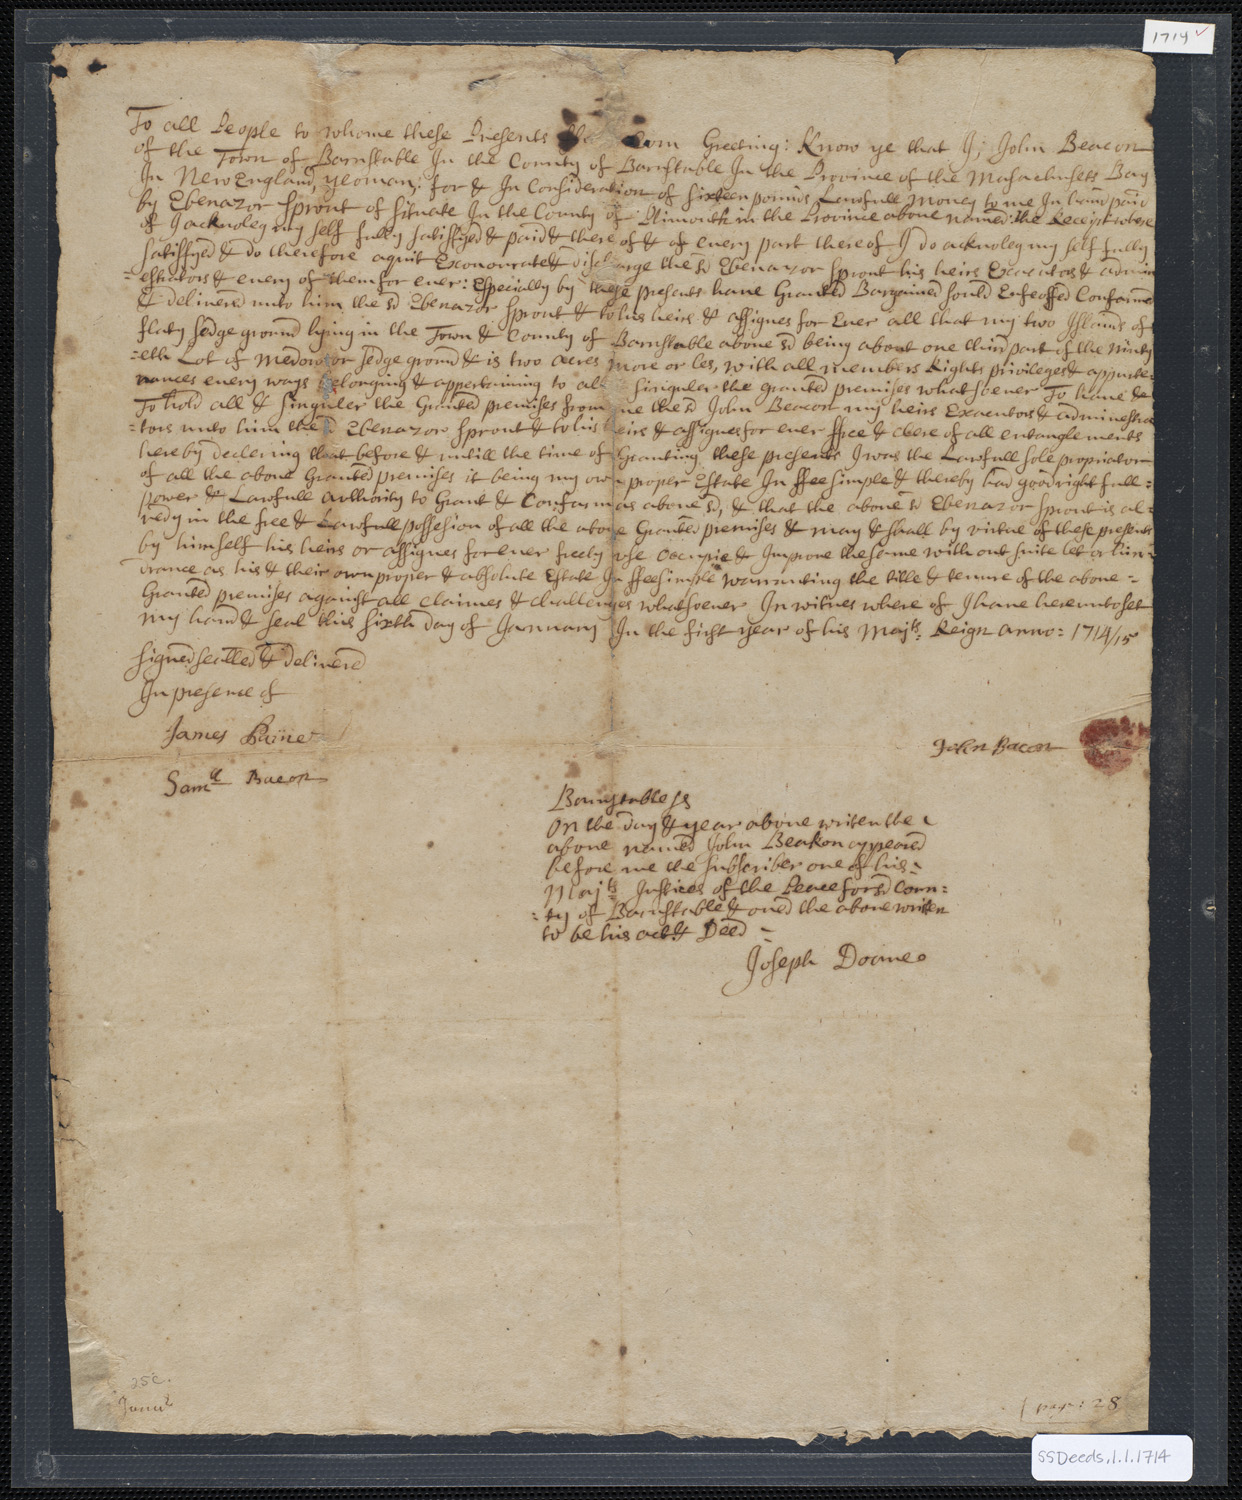 1714
To all People to whome these Presents shall Com Greeting: Know ye that I, John Beacon
of the Town of Barnstable In the County of Barnstable In the Province of the Masachusets Bay
In New England, yeoman; for & In Consideration of sixteen pounds Lawfull money to me In hand paid
by Ebenazor Sprout of Situate In the County of Plimouth in the Province above named: the Receipt where
of I acknoleg my self fully satisfyed & paid & there of & of every part thereof I do acknoleg my self fully
satisfyed & do therefore aquit Exconourate & discharge the sd Ebenazor Sprout his heirs Executors & admin
=estrators & every of them for ever: Especially by these presents have Granted Bargained sould Enfeoffed Confarmed
& delivered unto him the sd Ebenazor Sprout & to his heirs & assignes for Ever all that my two Islands of
flaty sedge ground lying in the Town & County of Barnstable above sd being about one third part of the ninty
=eth Lot of medow or sedge ground & is two acres more or les, with all members Rights privileges & appurte=
nances every ways belonging & appertaining to all singuler the granted premises whatsoever To have &
To hold all & singuler the Granted premises from me the sd John Beacon my heirs Executors & adminestra
=tors unto him the sd Ebenazor Sprout & to his heirs & assignes for ever ffree & clere of all entanglements
hereby declering that before & untill the time of Granting these presents I was the Lawfull sole propriator
of all the above Granted premises it being my own proper Estate In ffee simple & thereby had good right full=
power & Lawfull Authority to Grant & Confarm as above sd, & that the above sd Ebenazor Sprout is al=
redy in the free & Lawfull possesion of all the above Granted premises & may & shall by virtue of these presents
by himself his heirs or assignes forever freely use occupie & Improve the same with out suite let or hin=
drance as his & their own proper & absolute Estate In ffee simple warranting the title & tenure of the above=
Granted premises against all claimes & challenges whatsoever In witnes where of I have hereunto set
my hand & seal this sixth day of January In the first year of his Majts: Reign anno: 1714/15
signed sealled & delivered
In presence of
James Paine
Samll Bacon
John Bacon
Barnstable ss
On the day & year above writen the
above named John Beakon appeared
before me the subscriber one of his
Majts Justices of the Peace for sd Coun=
=ty of Barnstable & oned the above writen
to be his act & Deed
Joseph Doane
25c.
pap: 28
SSDeeds,1.1.1714